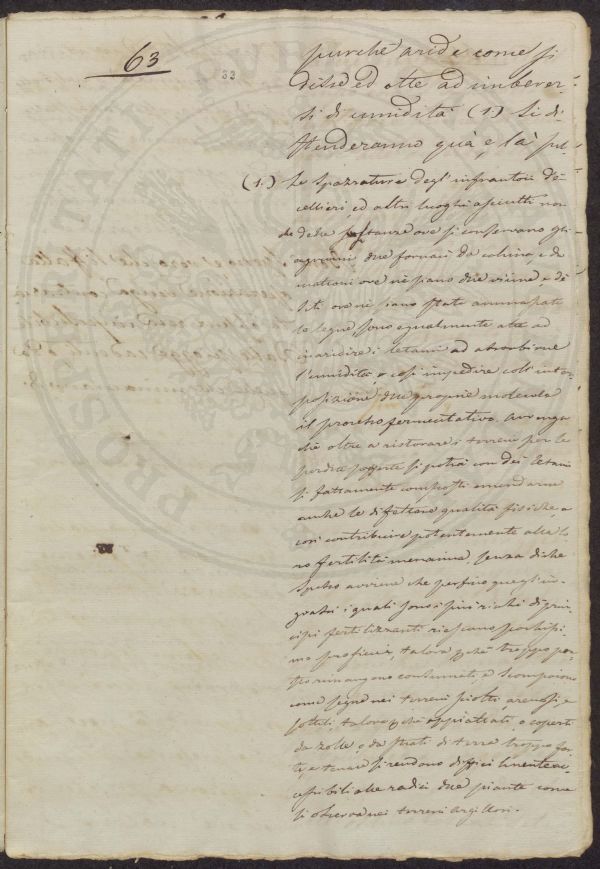 63
33
purchè aride come si
disse ed atte ad imbever-
si di umidità (1) si di-
stenderanno quà e là sul-
(1) Le spazzature degl' infrantoi de
cellieri, ed altri luoghi asciutti non
che delle stanze ove si conservano gli
agrumi due fornaci da calcina, e da
mattoni ove ne siano due vicine, e de
siti ove ne siano state ammassate
le legne, sono egualmente atte ad
inaridire i letami ad absorbirne
l'umidità, e così impedire coll' inter-
posizione due proprie molecole
il processo fermentativo. Avvenga-
chè oltre a ristorare i terreni per le
perdite sofferte si potrà con dei letami
sì fattamente composti emendarne
anche le difettose qualità fisiche, e
così contribuire potentemente alla lo-
ro fertilità menoma, senza di che
spesso avviene che perfino quegli in-
grassi i quali sono i più ricchi di prin-
cipi fertilizzanti riescano pochissi-
mo proficui, talora chè troppo pre-
sto rimangono consumati, e scomposti
come segue nei terreni sciolti, arenosi, e
sottili, talora chè appiattati, o coperti
da zolle, o da strati di terra troppo for-
te, e tenace si rendono difficilmente ac-
cessibili alle radici due piante come
si osserva nei terreni argillosi.